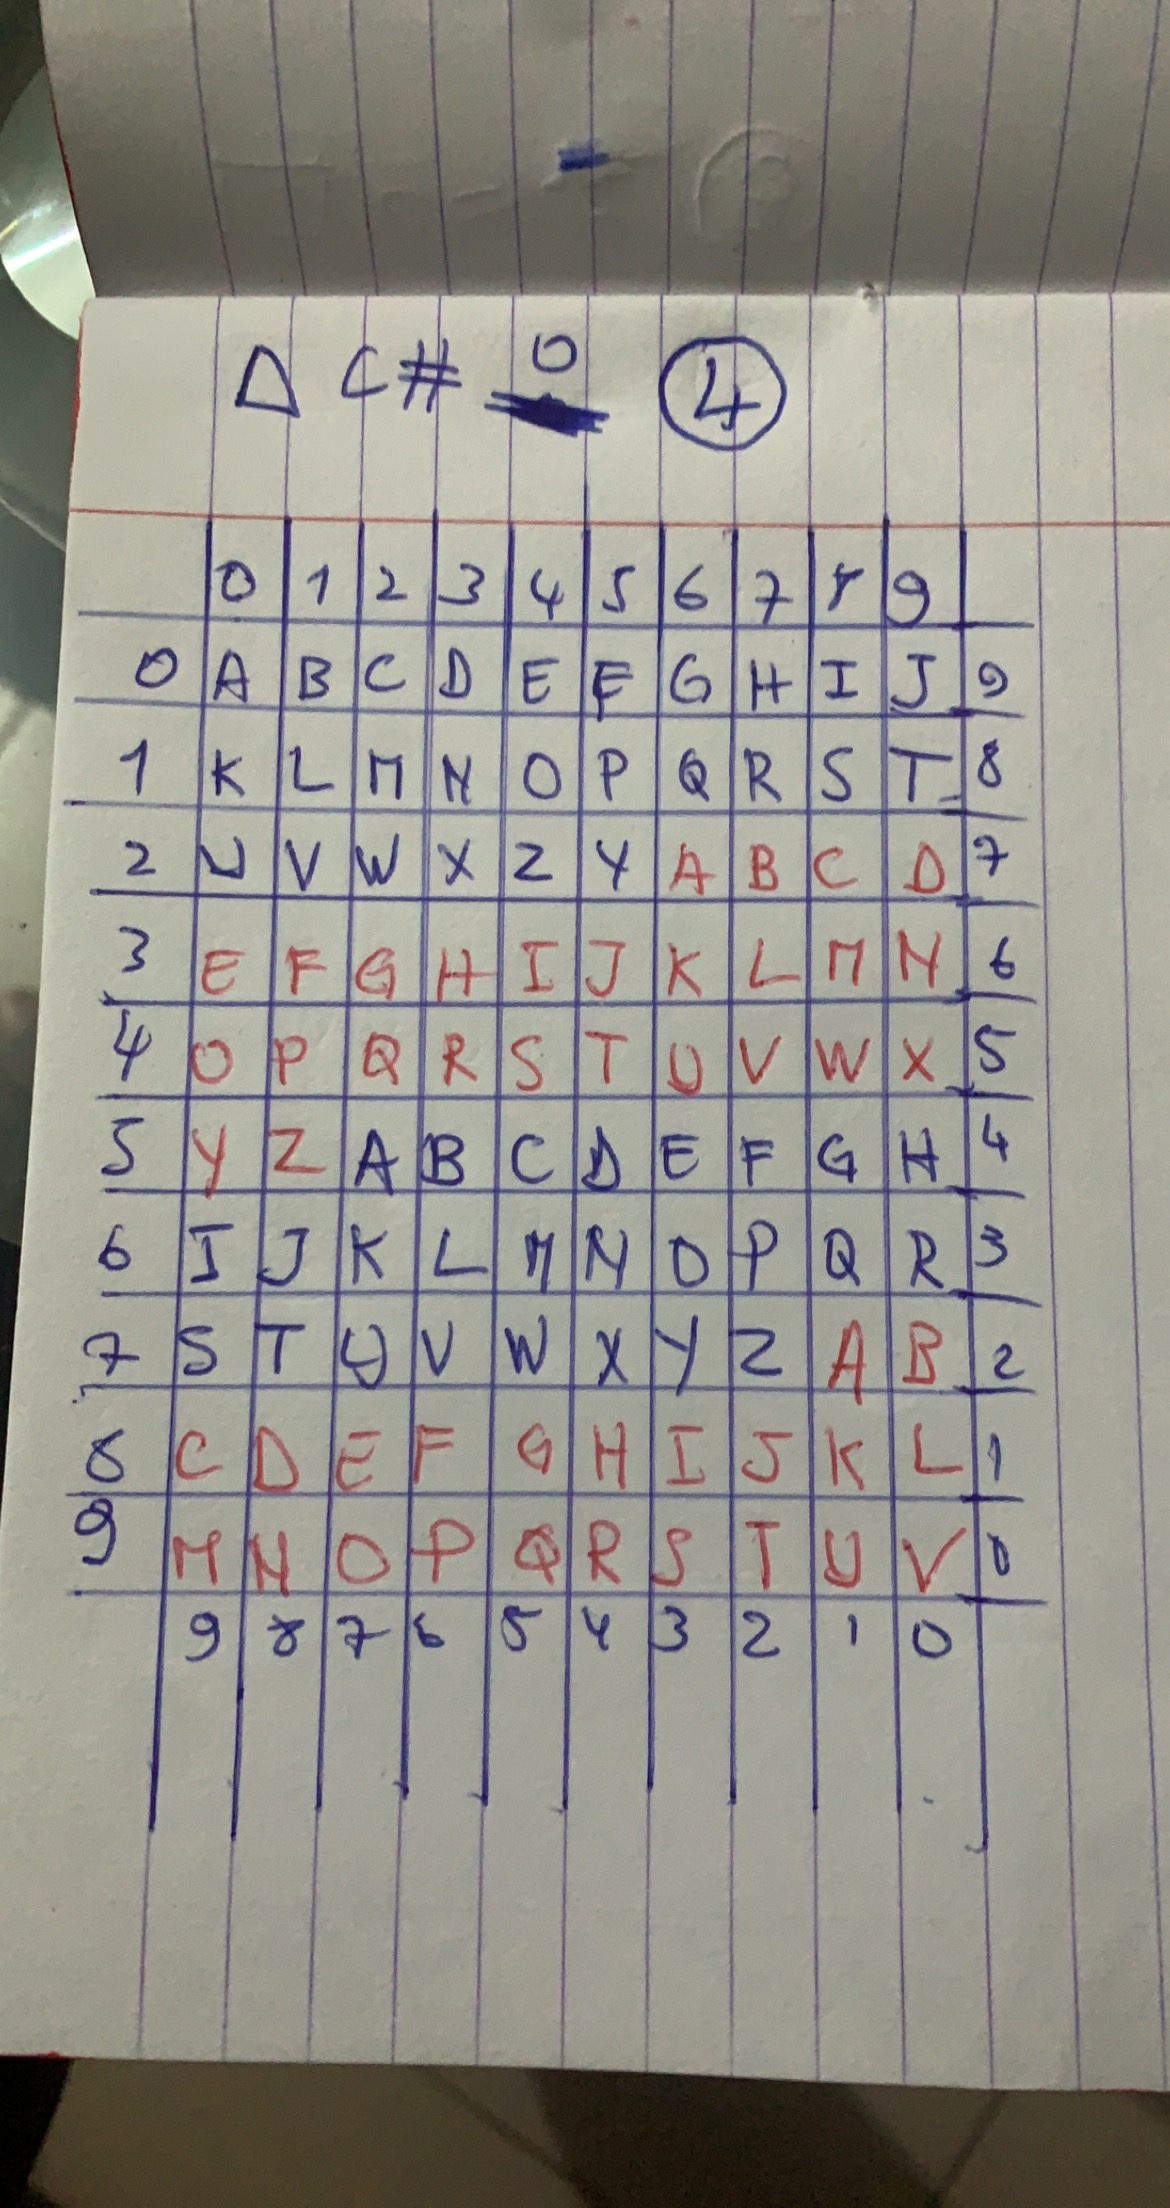 Δ C# 0 4
0 1 2 3 4 5 6 7 8 9
0 A B C D E F G H I J 9
1 K L M N O P Q R S T 8
2 U V W X Z Y A B C D 7
3 E F G H I J K L M N 6
4 O P Q R S T U V W X 5
5 Y Z A B C D E F G H 4
6 I J K L M N O P Q R 3
7 S T U V W X Y Z A B 2
8 C D E F G H I J K L 1
9 M N O P Q R S T U V 0
9 8 7 6 5 4 3 2 1 0